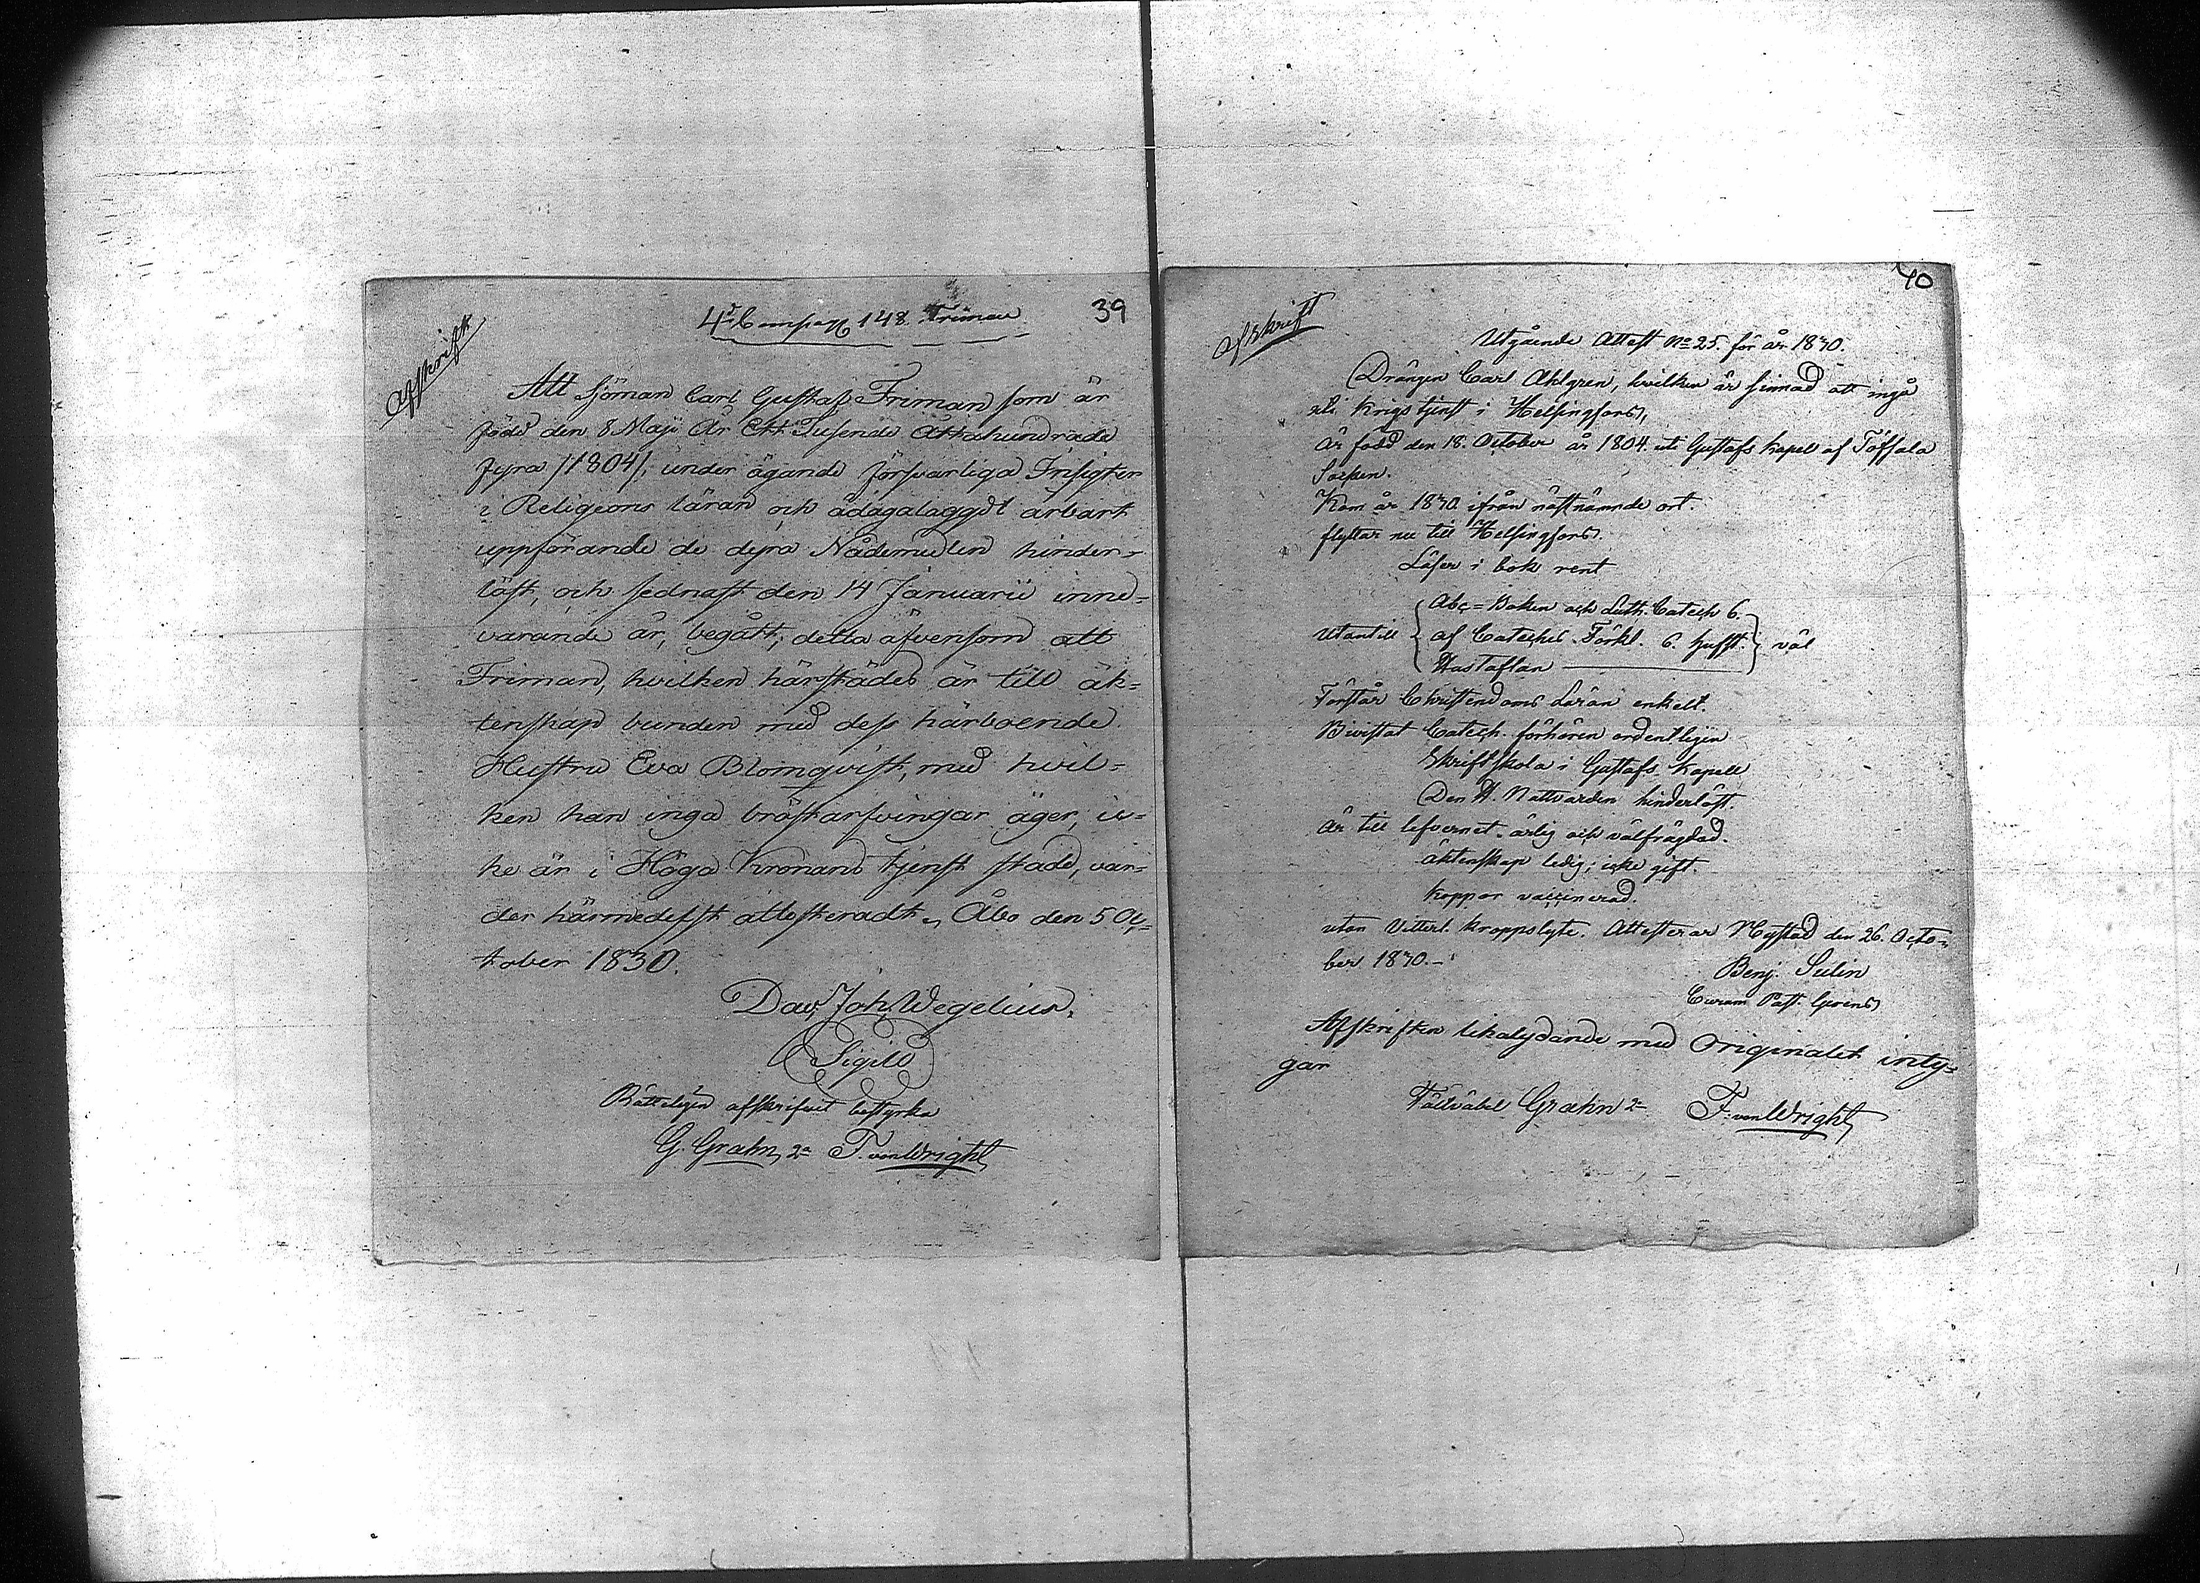 39
Afskrift
4de Compag 148 Friman
Att Sjöman Carl Gustaf Friman som är
född den 8 Maji År Ett Tusende Åttahundrade
fyra /1804/, under ägande försvarliga Insigter
i Religions läran och ådagalaggdt ärbart
uppförande de dyra Nådemedlen hinder-
löst, och sednast den 14 Januarii inne-
varande år, begått; detta äfvensom att
Friman, hvilken härstädes är till äk-
tenskap bunden med dess härboende
Hustru Eva Blomqvist, med hvil-
ken han inga bröstarfvingar äger, ic-
ke är i Höga Kronans tjenst stadd, var-
der härmedelst attesteradt, Åbo den 5 Oc-
tober 1830.
Dav. Joh. Wegelius.
Sigill
Rätteligen afskrifvet bestyrka
G. Grahn 2a F. von Wright
40
Afskrift
Utgående Attest No 25. för år 1830.
Drängen Carl Ahlgren, hvilken är sinnad att ingå
uti Krigstjenst i Helsingfors,
Är född den 18. October år 1804. uti Gustafs Kapel af Töfsala
Socken.
Kom år 1830. ifrån nästnämnde ort.
flyttar nu till Helsingfors.
Läser i bok rent
Abc-Boken och Luth. Catech 6.
Utantill af Catechet. Förkl. 6. hufst. väl
Hustaflan
Förstår Christendoms Läran enkelt.
Bivistat Catech. förhören ordentligen
Skriftskola i Gustafs Kapell
Den H. Nattvarden hinderlöst.
Är till lefvernet. ärlig och välfrägdad.
äktenskap ledig; icke gift.
koppor vaccinerad.
utan Vitterl. Kroppslyte. Attesterar Nystad den 26. Octo-
ber 1830.-
Benj. Sulin
Curam Past. Gerens
Afskriften likalydande med Originalet inty-
gar
Fältväbel Grahn 2a F. von Wright